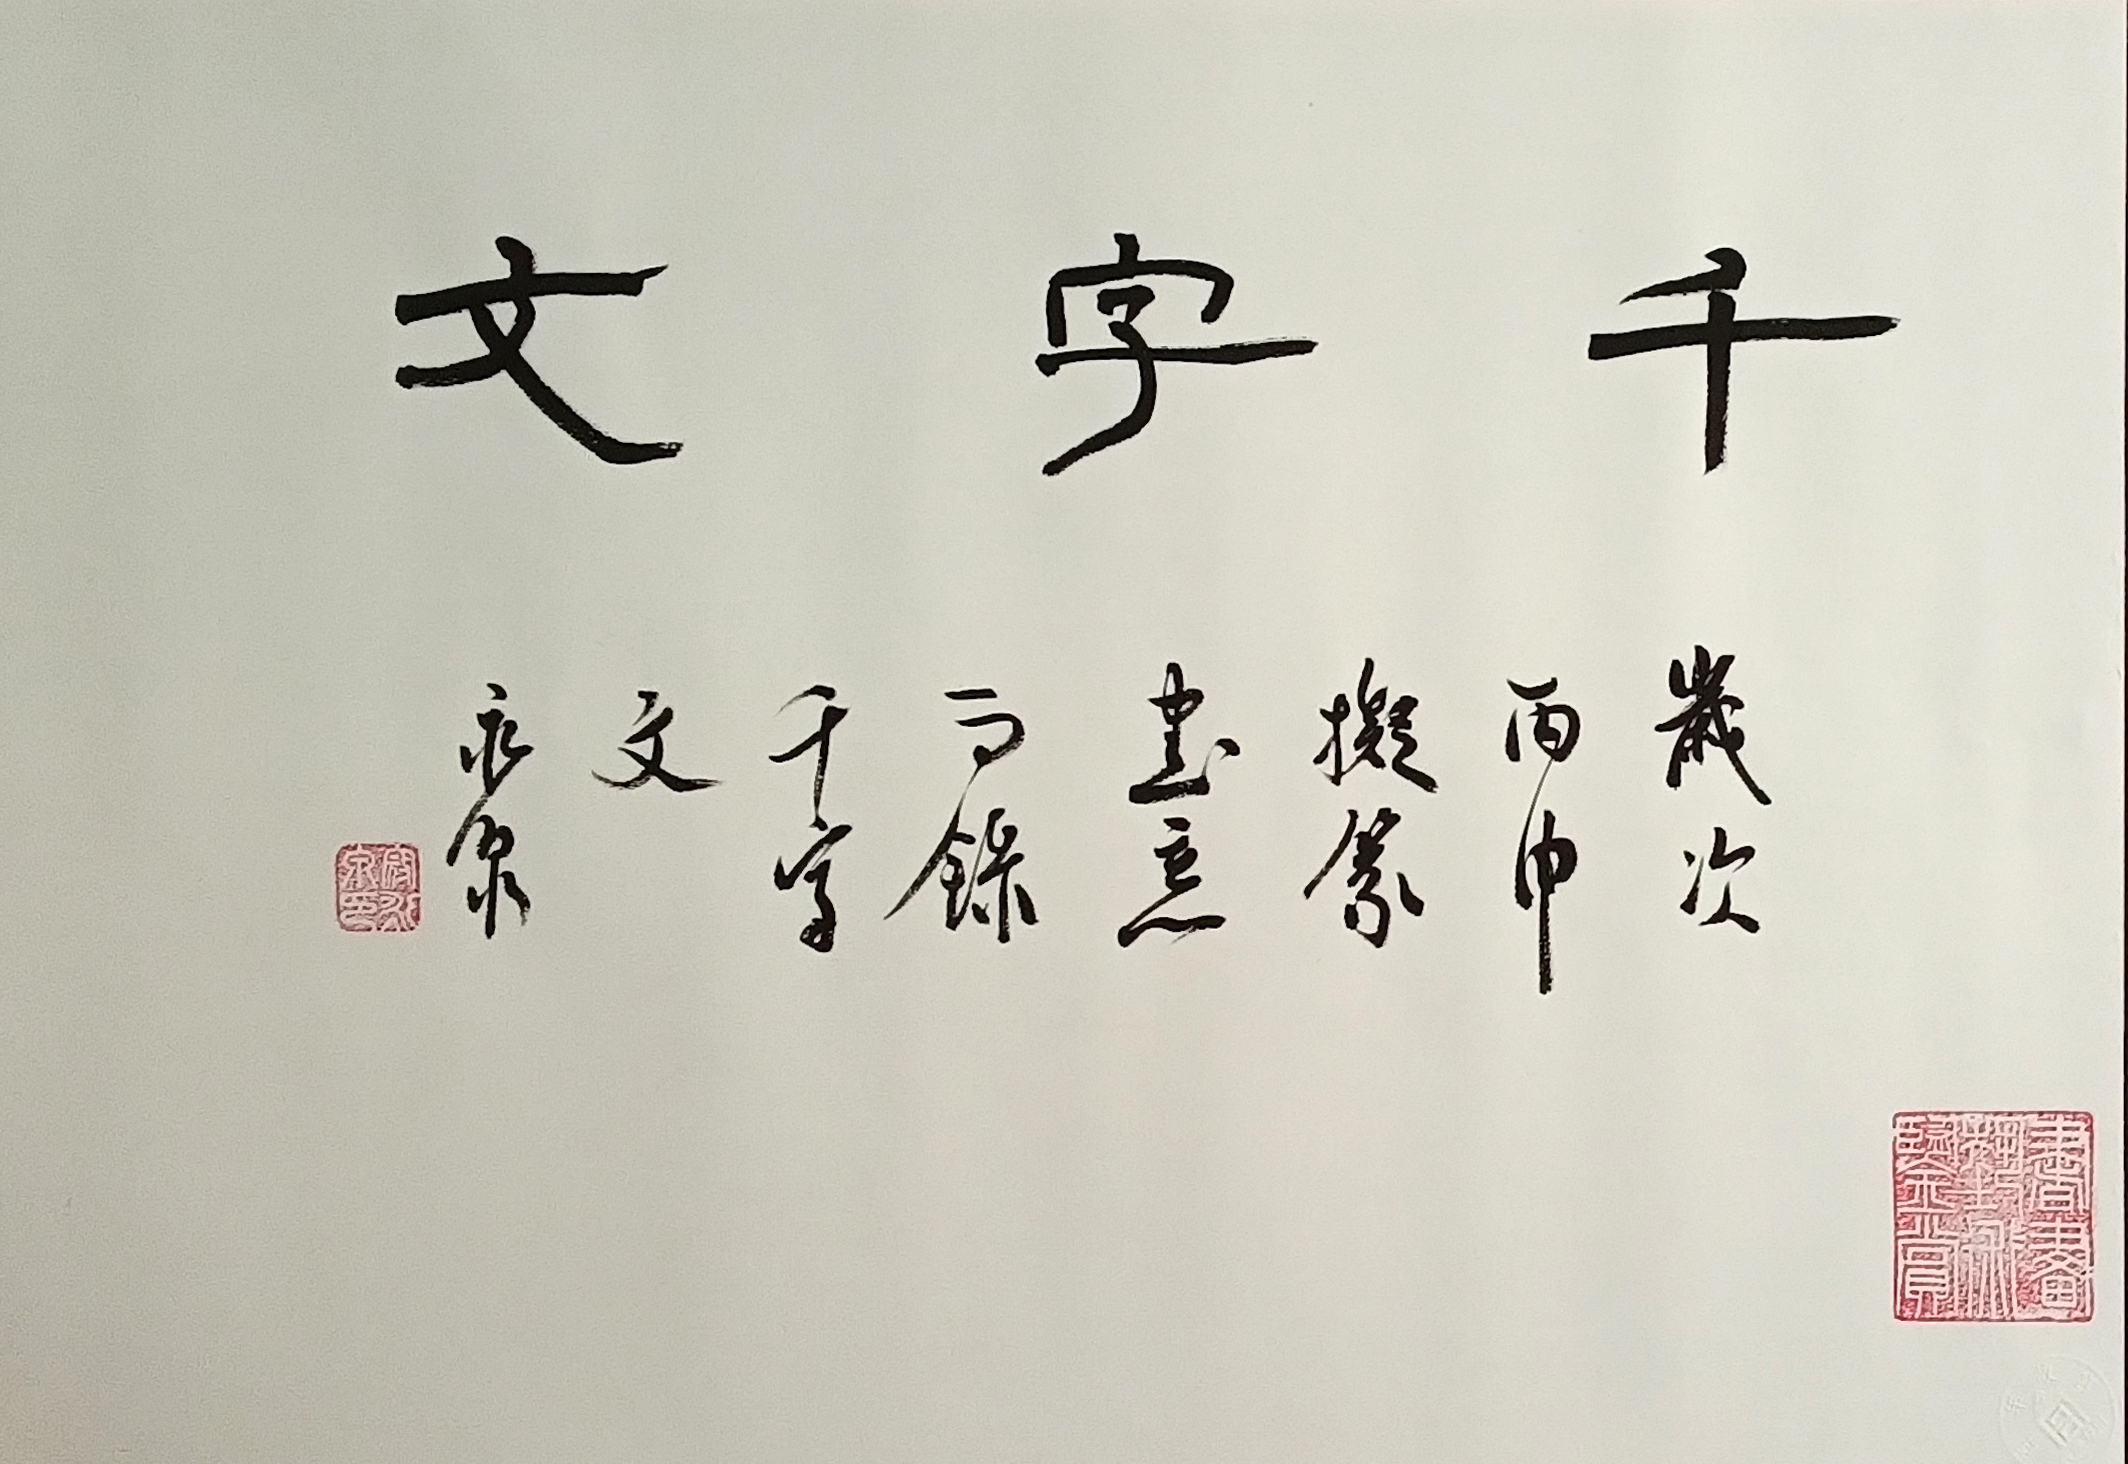 千字文
歲次
丙申
擬篆
書意
而錄
千字
文
永泉